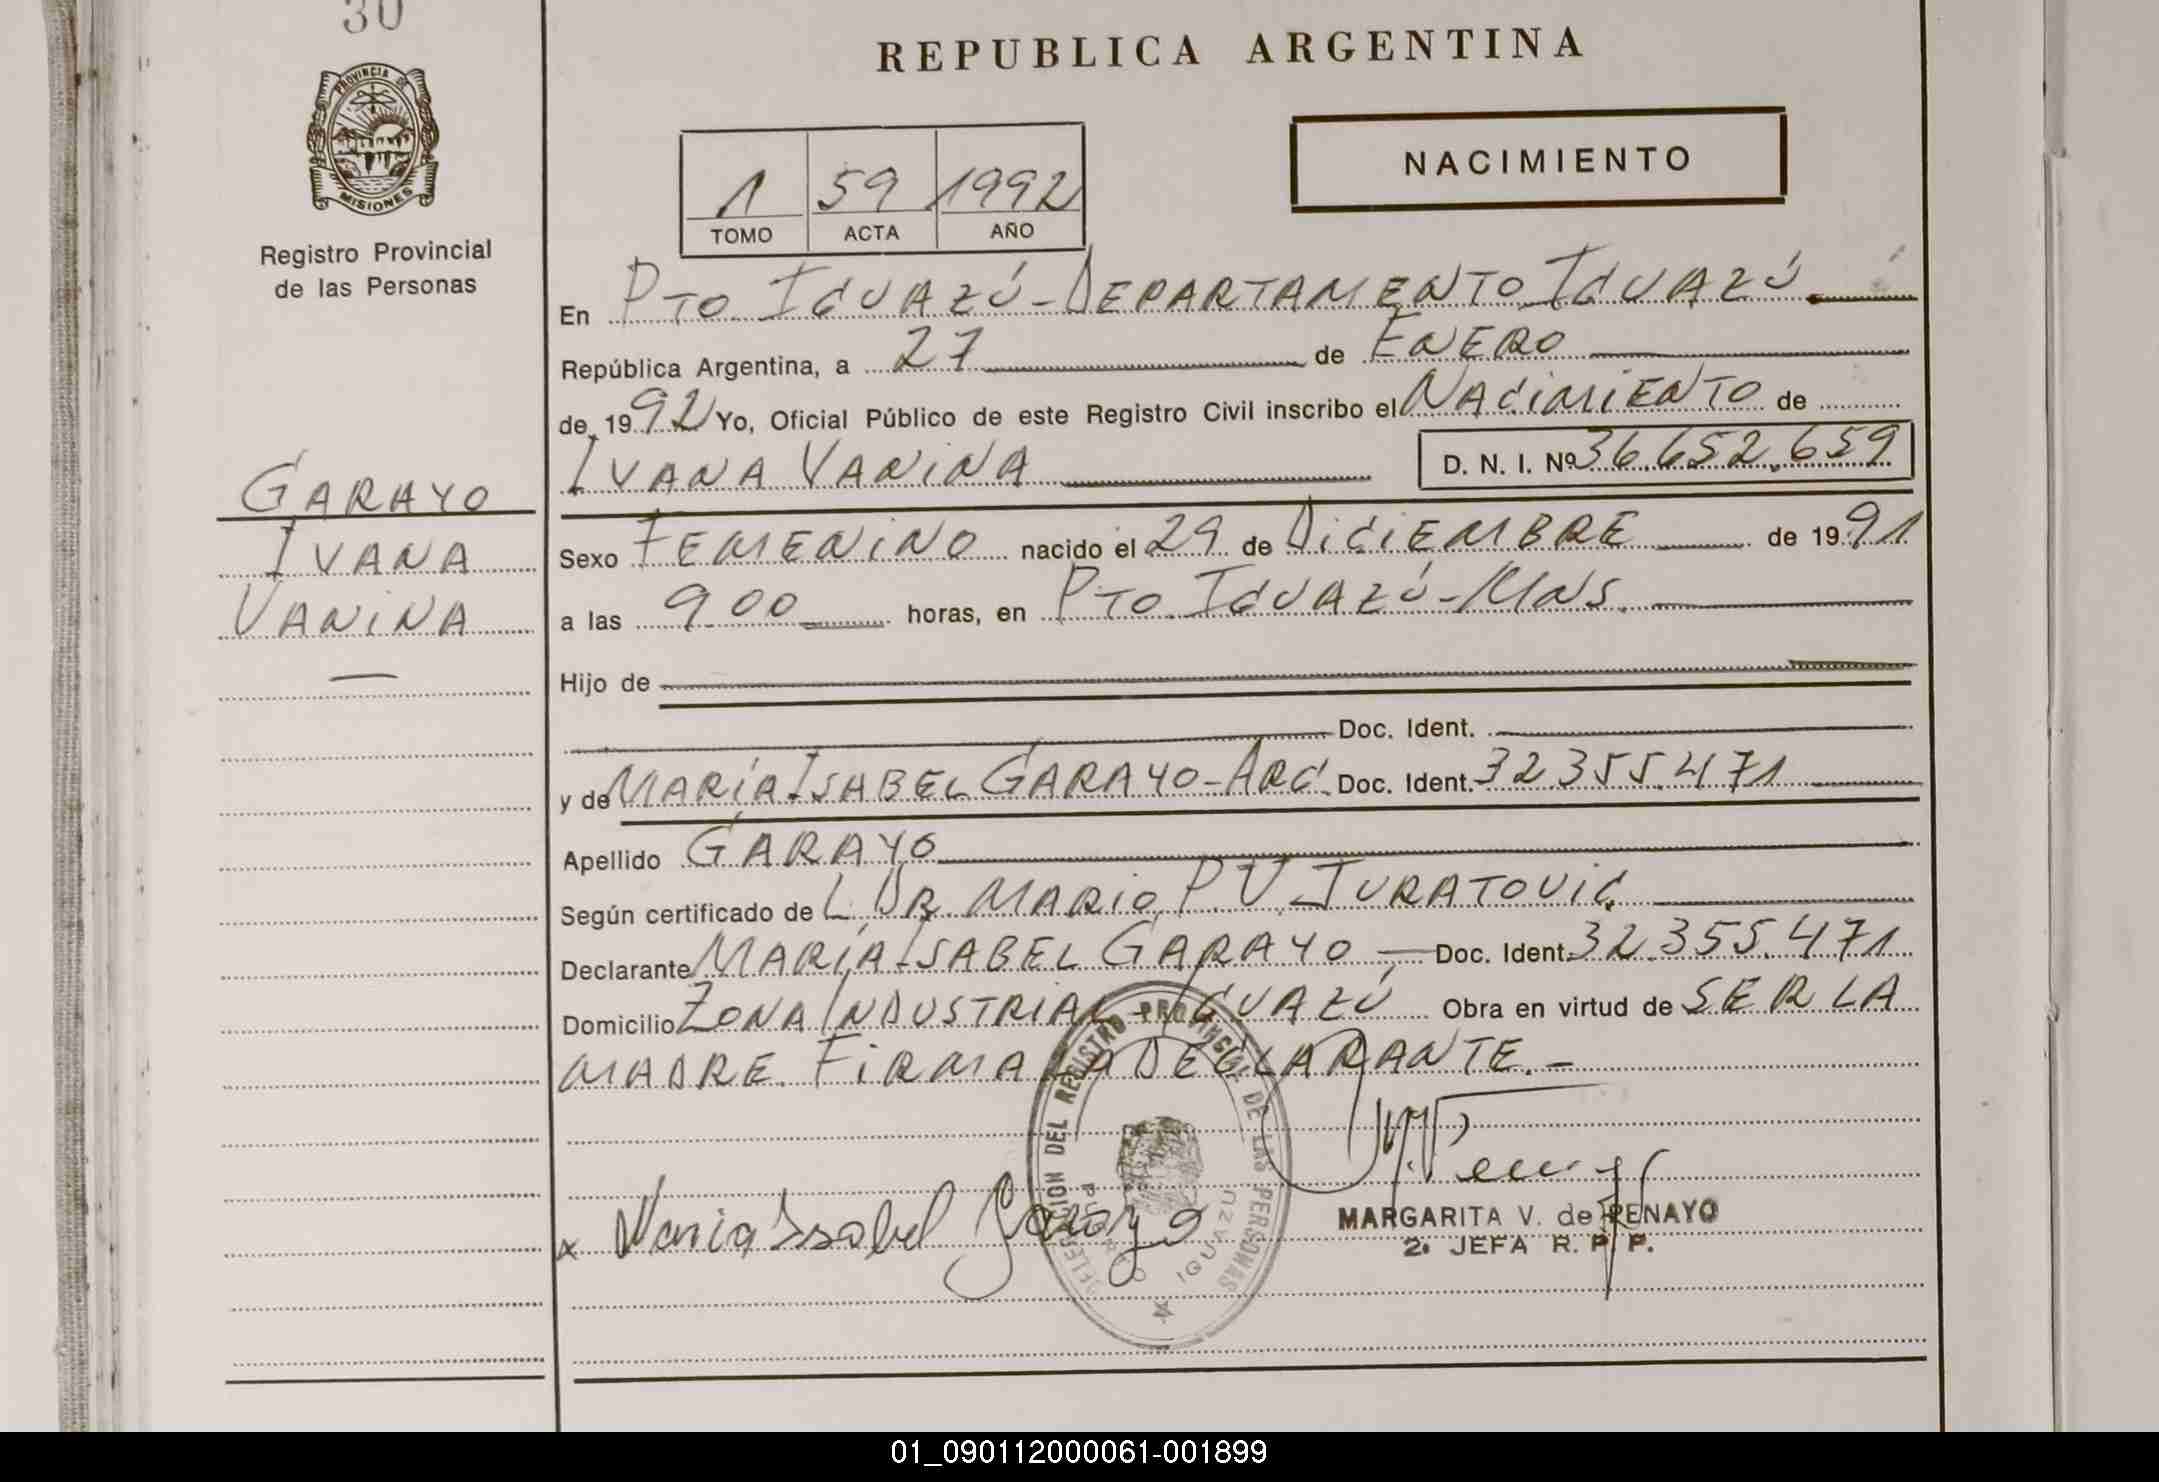 30
REPUBLICA ARGENTINA
PROVINCIA DE
MISIONES
Registro Provincial
de las Personas
NACIMIENTO
1 59 1992
TOMO ACTA AÑO
En PTO IGUAZÚ - DEPARTAMENTO IGUAZÚ.
República Argentina, a 27 de ENERO
de 1992 Yo, Oficial Público de este Registro Civil inscribo el NACIMIENTO de
IVANA VANINA D. N. I. Nº 36.652.659
GARAYO
IVANA
VANINA
—
Sexo FEMENINO nacido el 29 de DICIEMBRE de 1991
a las 9 00 horas, en PTO IGUAZÚ - MNS.
Hijo de
Doc. Ident.
y de MARÍA ISABEL GARAYO - ARG. Doc. Ident. 32.355.471
Apellido GARAYO
Según certificado de L DR. MARIO P. V. JURATOVIC
Declarante MARÍA ISABEL GARAYO - Doc. Ident. 32.355.471
Domicilio ZONA INDUSTRIAL - IGUAZÚ Obra en virtud de SER LA
MADRE. FIRMA LA DECLARANTE. -
DEL REGISTRO PROVINCIAL DE LAS PERSONAS
PUERTO IGUAZU
x Maria Issabel Garayo
MARGARITA V. de PENAYO
2º JEFA R. P. P.
01_090112000061-001899